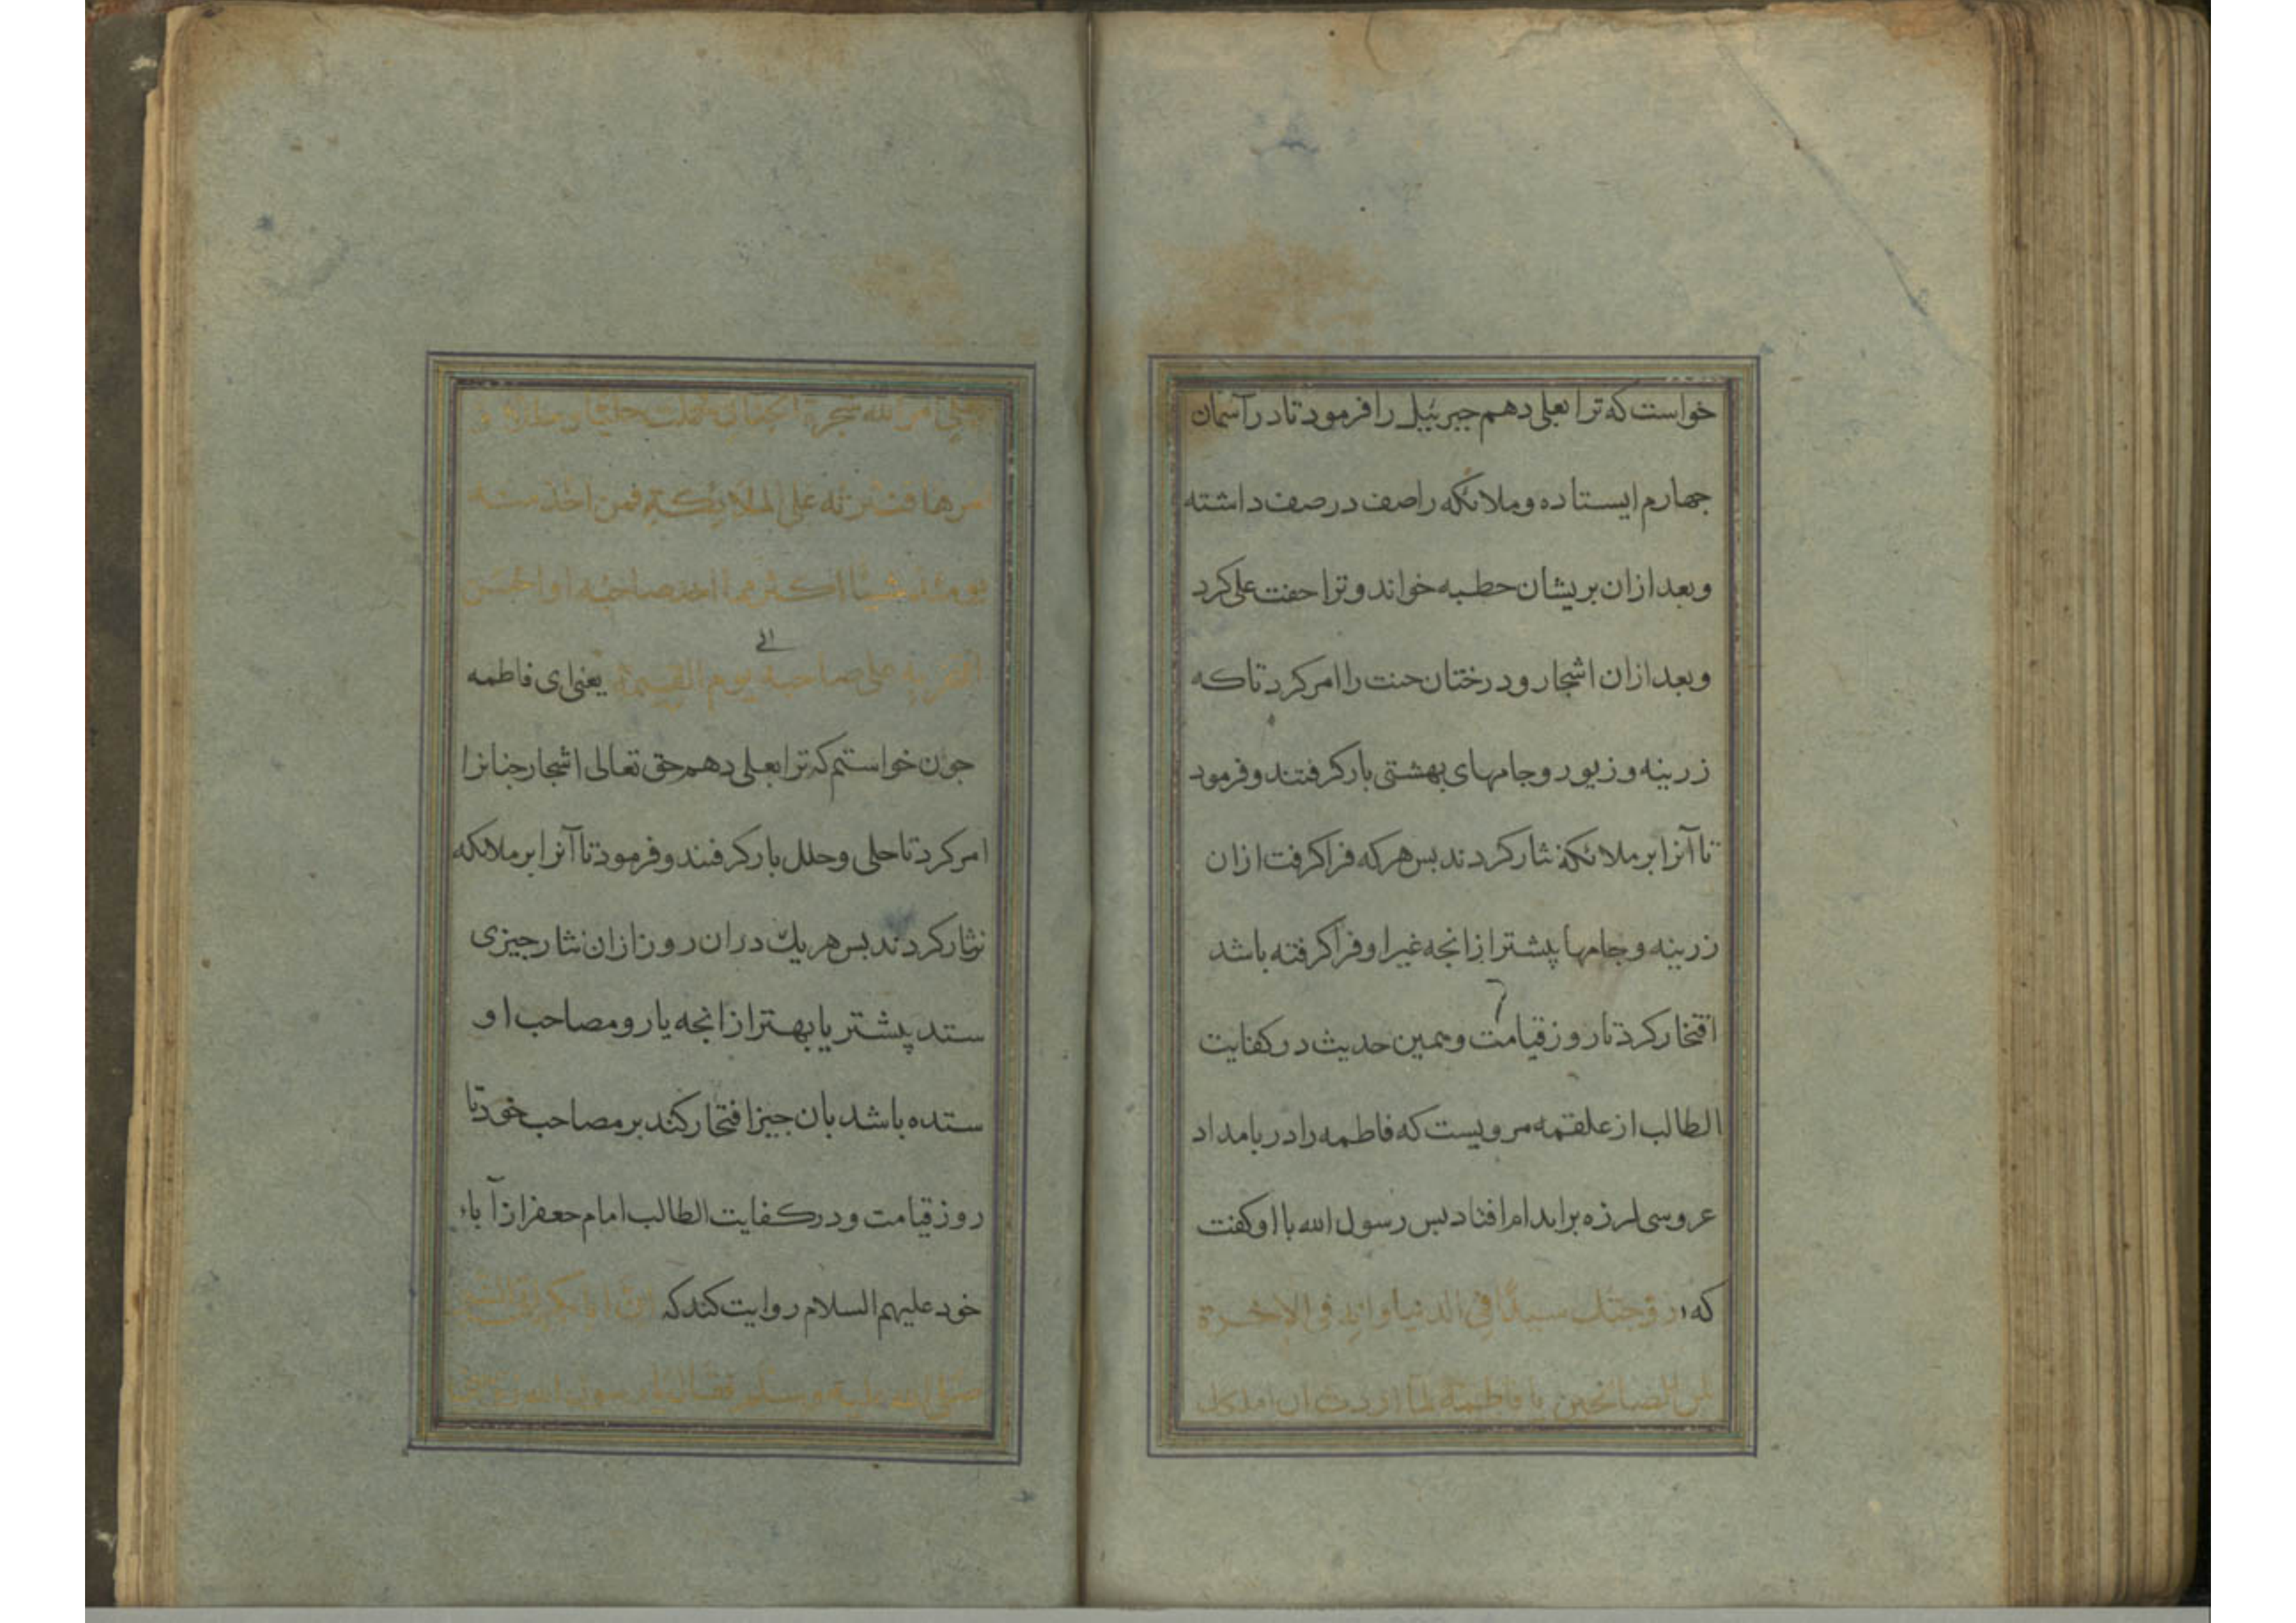 خواست که ترا بعلی دهم جبرئیل را فرمود تا در آسمان
جهارم ایستاده و ملائکه را صف در صف داشته
و بعد ازان بریشان خطبه خواند و ترا جفت علی کرد
و بعد ازان اشجار و درختان جنت را امر کرد تا که
زرینه و زیور و جامهای بهشتی بار کرفتند و فرمود
تا آنرا بر ملائکه نثار کردند بس هر که فرا کرفت ازان
زرینه و جامها پیشتر از انجه غیر او فرا کرفته باشد
افتخار کرد تا روز قیامت و همین حدیث در کفایت
الطالب از علقمه مرویست که فاطمه را در بامداد
عروسی لرزه بر اندام افتاد بس رسول الله با او کفت
که زوجتك سیدًا فی الدنیا وانه فی الاخرة
لمن الصالحین یا فاطمة لما اردت ان املکك
بعلی امر الله شجرة الجنان فحملت حلیا و حللا و
امرها فنثرته علی الملائکة فمن اخذ منه
یومئذ شیئا اکثر مما اخذ صاحبه او احسن
افتخر به علی صاحبه الی یوم القیمة یعنی ای فاطمه
جون خواستم که ترا بعلی دهم حق تعالی اشجار جنانرا
امر کرد تا حلی و حلل بار کرفتند و فرمود تا آنرا بر ملائکه
نثار کردند بس هر یك دران روز ازان نثار جیزی
ستد پیشتر یا بهتر از انجه یار و مصاحب او
ستده باشد بان جیز افتخار کند بر مصاحب خود تا
روز قیامت و در کفایت الطالب امام جعفر از آباء
خود علیهم السلام روایت کند که ان ابا بکر اتی النبی
صلی الله علیه و سلم فقال یا رسول الله زوجنی